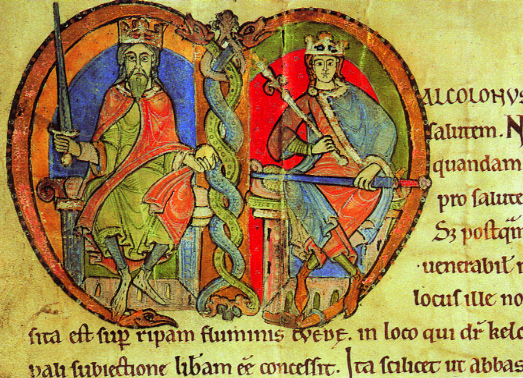 MALCOLONVS
salutem. N
quandam
pro salute
Sz postqm̄
uenerabil'
locus ille no
sita est sup̄ ripam fluminis TVEDE. in loco qui dr̄ kelc
uali subiectione lib̄am eē concessit. Ita scilicet ut abbas